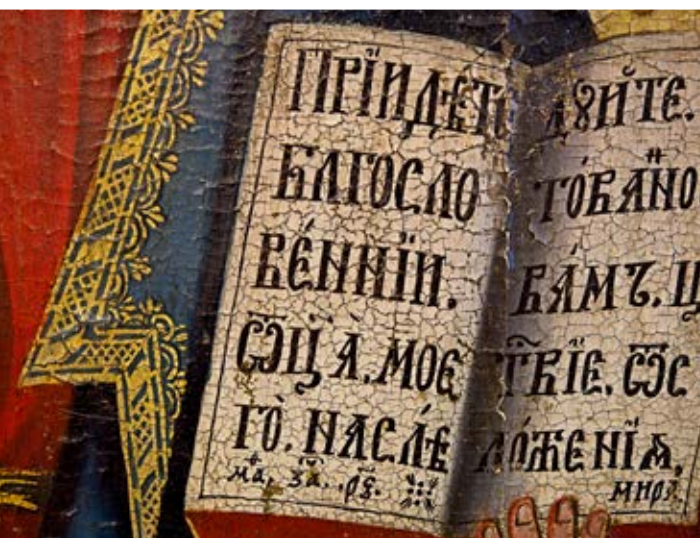 ПРЇИДѢТЕ
БЛГОСЛО
ВЕ́ННЇИ.
ѾЦ̀А.МОЕ
ГО̀.НАСЛѢ́
ма, за. рѕ.
ДꙊЙТЕ.
ТО́ВАНО
ВА́МЪ.Ц
СТВЇЕ.ѾС
ЛО́ЖЕНЇѦ,
мира.